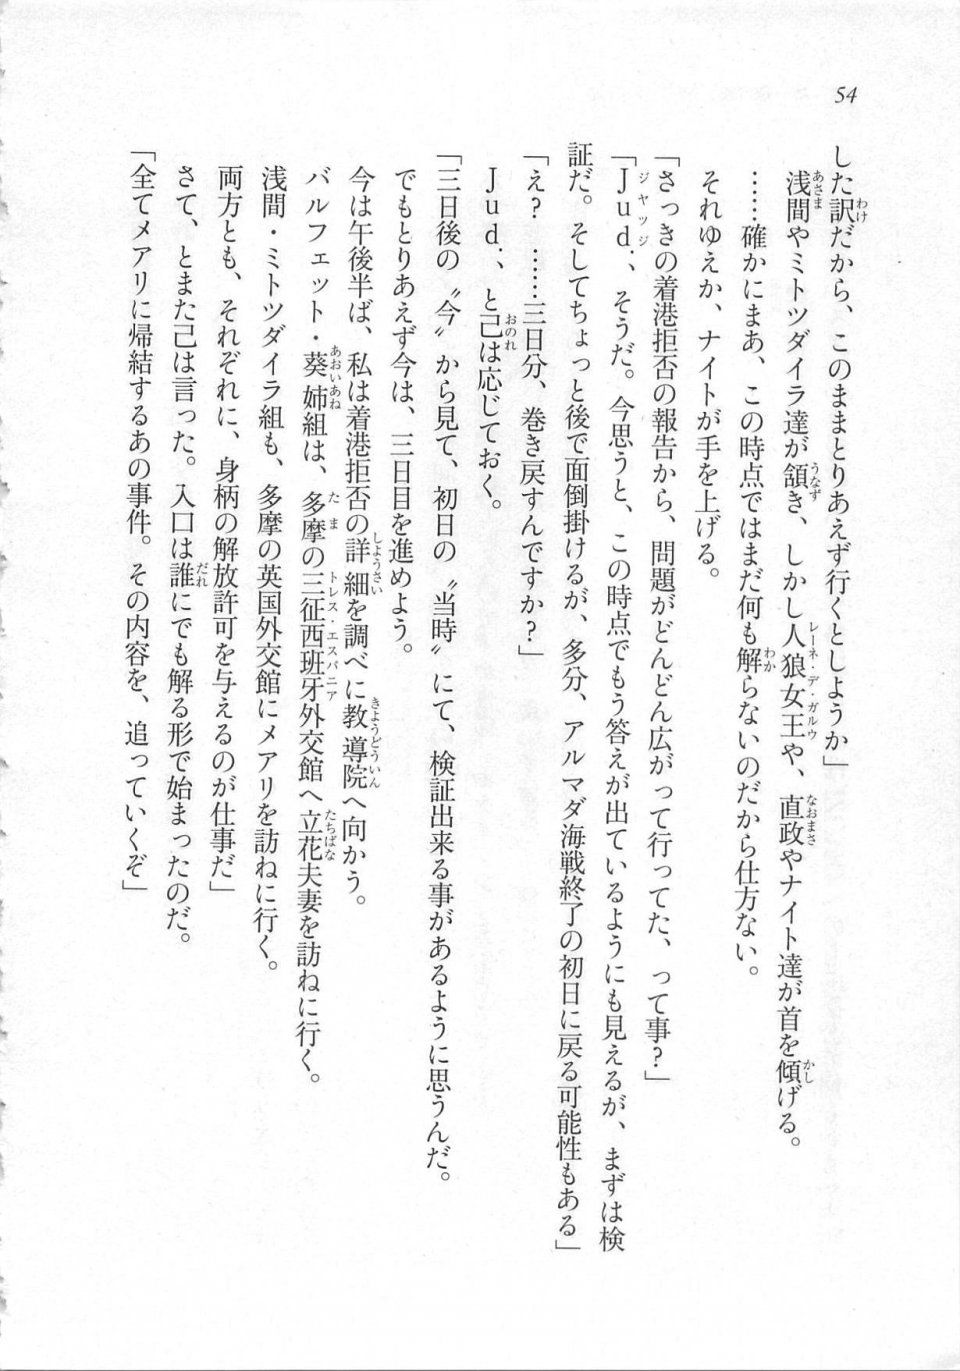 54
した訳だから、このままとりあえず行くとしようか」
浅間やミトツダイラ達が頷き、しかし人狼女王や、直政やナイト達が首を傾げる。
……確かにまあ、この時点ではまだ何も解らないのだから仕方ない。
それゆえか、ナイトが手を上げる。
「さっきの着港拒否の報告から、問題がどんどん広がって行ってた、って事？」
「Ｊｕｄ．、そうだ。今思うと、この時点でもう答えが出ているようにも見えるが、まずは検
証だ。そしてちょっと後で面倒掛けるが、多分、アルマダ海戦終了の初日に戻る可能性もある」
「え？　……三日分、巻き戻すんですか？」
Ｊｕｄ．、と己は応じておく。
「三日後の〝今〟から見て、初日の〝当時〟にて、検証出来る事があるように思うんだ。
でもとりあえず今は、三日目を進めよう。
今は午後半ば、私は着港拒否の詳細を調べに教導院へ向かう。
バルフェット・葵姉組は、多摩の三征西班牙外交館へ立花夫妻を訪ねに行く。
浅間・ミトツダイラ組も、多摩の英国外交館にメアリを訪ねに行く。
両方とも、それぞれに、身柄の解放許可を与えるのが仕事だ」
さて、とまた己は言った。入口は誰にでも解る形で始まったのだ。
「全てメアリに帰結するあの事件。その内容を、追っていくぞ」